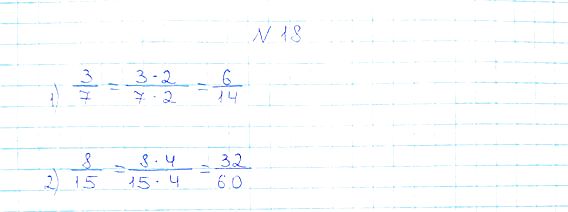 N 18
1) 3/7 = 3·2/7·2 = 6/14
2) 8/15 = 8·4/15·4 = 32/60